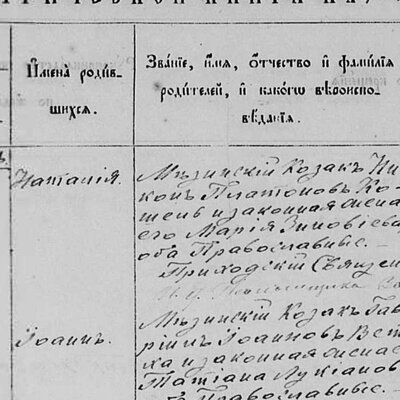 Имена родив-
шихся.
Званіе, имя, отчество и фамилія
родителей, и какогω вѣроиспо-
вѣданія.
Наталія.
Мѣзинскій Козакъ Ни-
конъ Платоновъ Ко-
и законная жена
его Марія Зиновіева
оба Православные.
Приходскій Священ
Іоаннъ.
Мѣзинскій Козакъ Гав-
риилъ Іоанновъ Вет
ха и законная жена
Татіана Лукіанов
Православные.